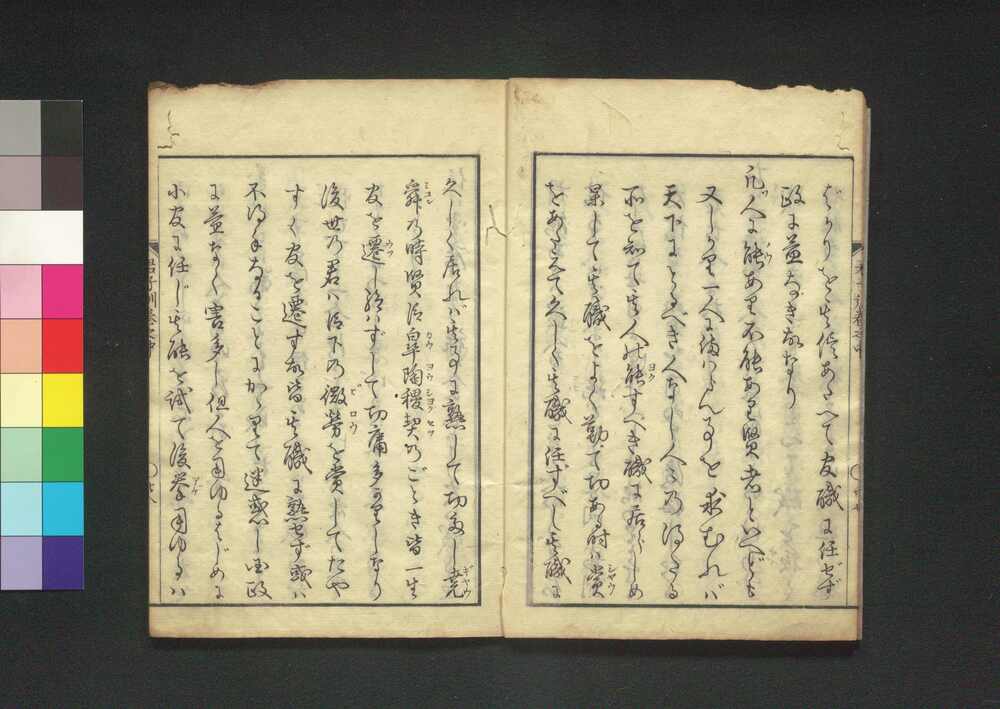 ばかりを其位あたへて官職に任せず
政に益なき故なり
凡人に能あり不能あり賢者といへども
又しかり一人に備はらん事を求むれば
天下にとるべき人なし人々の得たる
所を知て其人の能すべき職に居らしめ
果して其職をよく勤て功ある時は賞
をあたへて久しく其職に任ずべし其職に
久しく居れば其事に熟して功多し堯
舜の時賢臣皐陶稷契のごとき皆一生
官を遷し給はずして功庸多かりしなり
後世の君は臣下の微労を賞してたや
すく官を遷す故皆其職に熟せず或は
不得手なることにかゝりて迷惑し国政
に益なく害多し但人を用ゆるはじめに
小官に任じ其能を試て後挙用ゆるは
君子訓巻之中